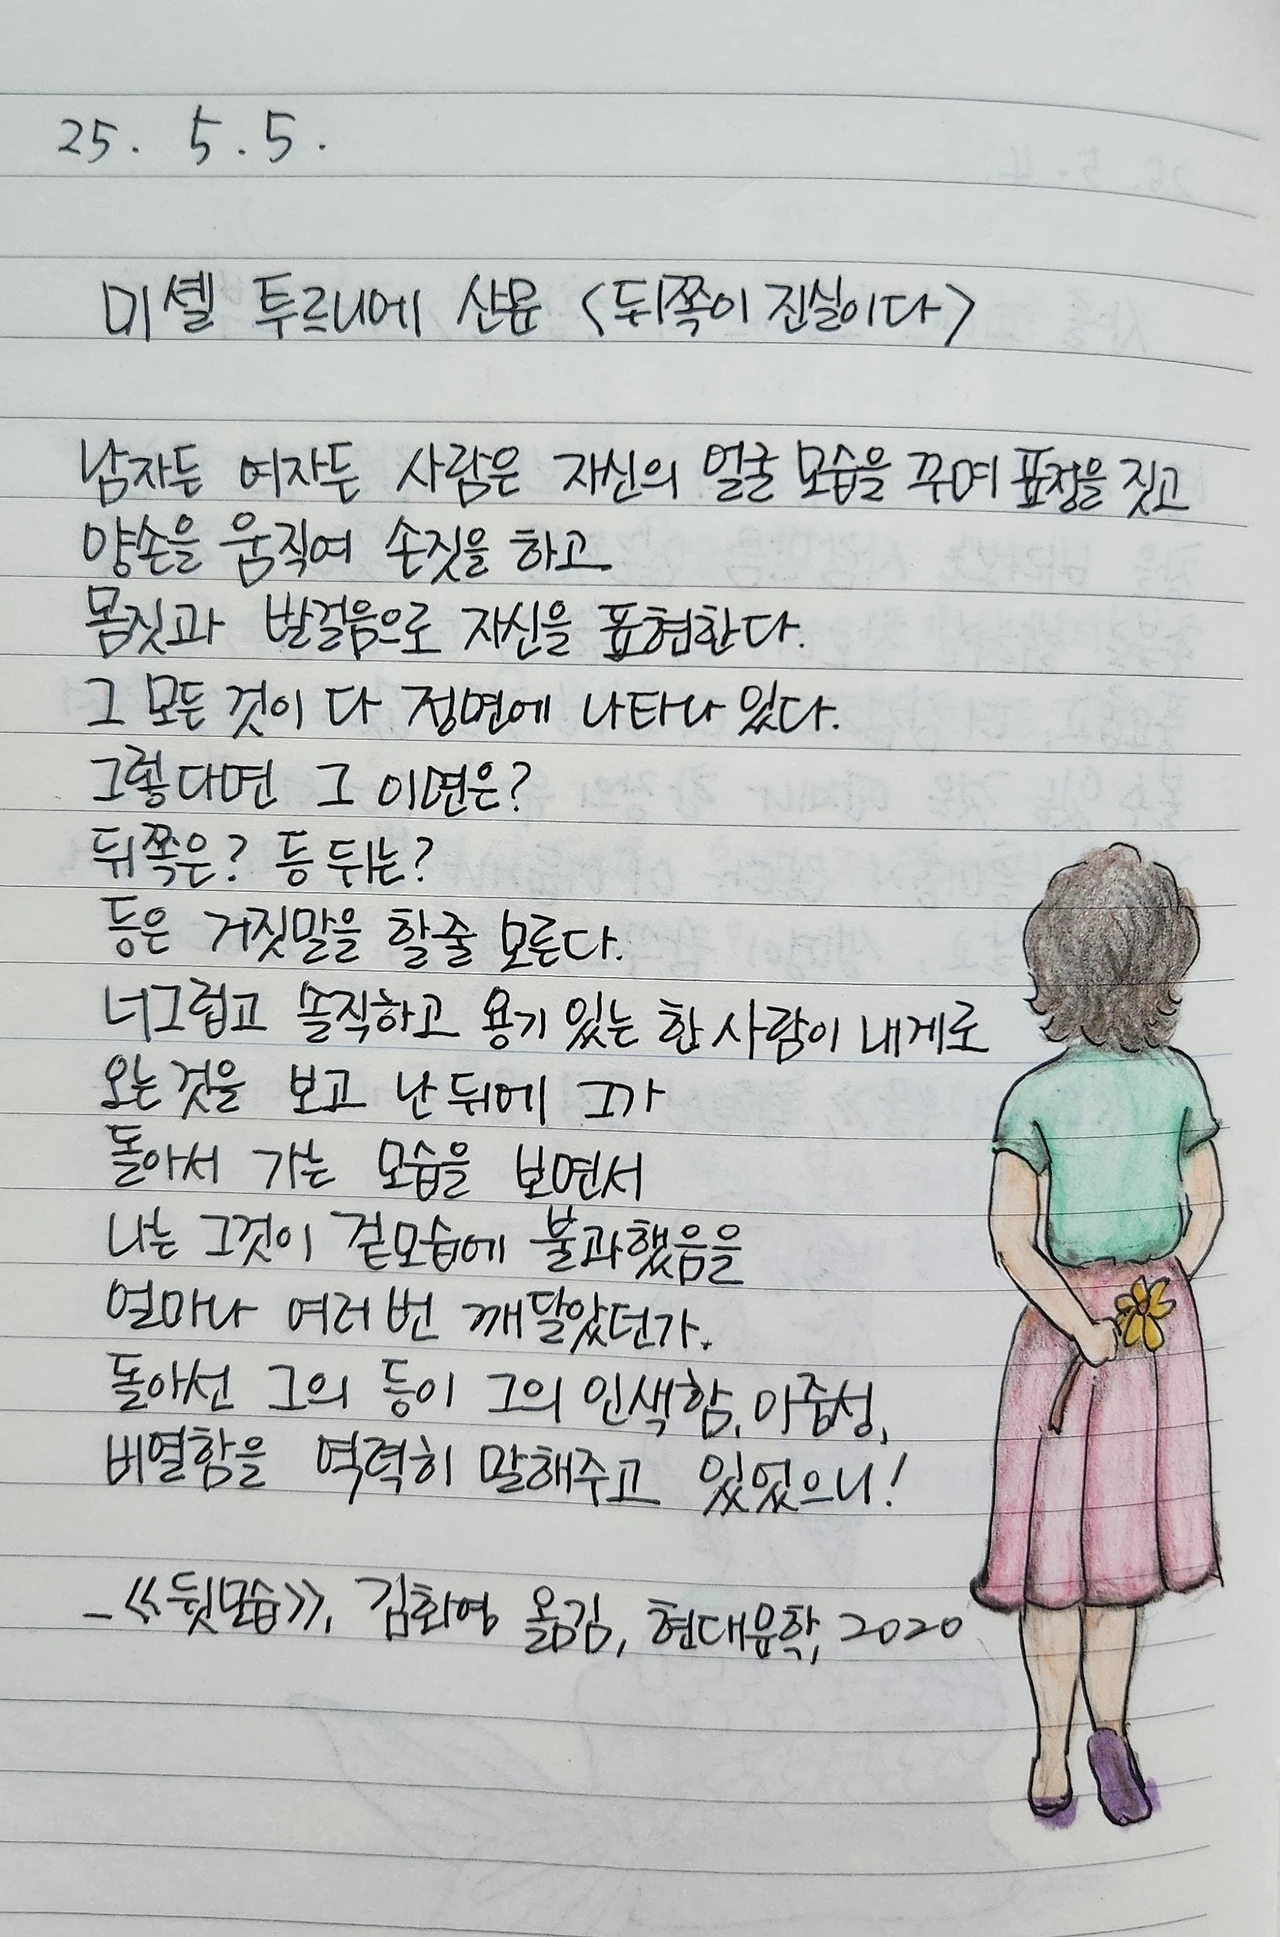 25. 5. 5.
미셸 투르니에 산문 <뒤쪽이 진실이다>
남자든 여자든 사람은 자신의 얼굴 모습을 꾸며 표정을 짓고
양손을 움직여 손짓을 하고
몸짓과 발걸음으로 자신을 표현한다.
그 모든 것이 다 정면에 나타나 있다.
그렇다면 그 이면은?
뒤쪽은? 등 뒤는?
등은 거짓말을 할줄 모른다.
너그럽고 솔직하고 용기 있는 한 사람이 내게로
오는 것을 보고 난 뒤에 그가
돌아서 가는 모습을 보면서
나는 그것이 겉모습에 불과했음을
얼마나 여러 번 깨달았던가.
돌아선 그의 등이 그의 인색함, 이중성,
비열함을 역력히 말해주고 있었으니!
_《뒷모습》, 김화영 옮김, 현대문학, 2020